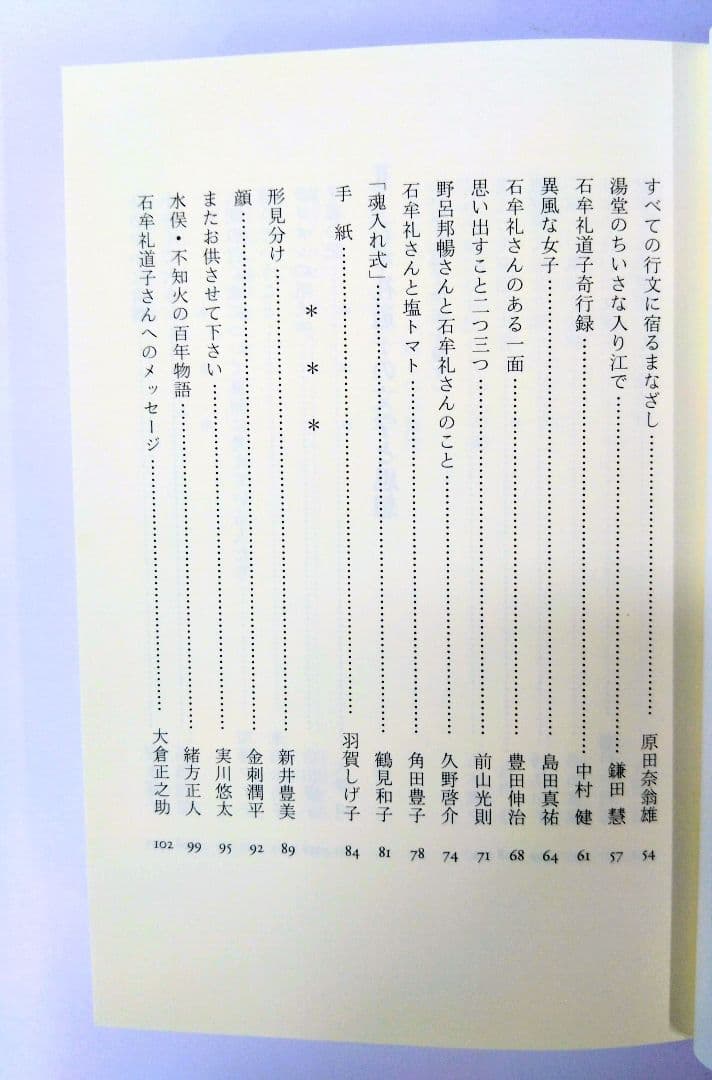 すべての行文に宿るまなざし……原田奈翁雄 54
湯堂のちいさな入り江で……鎌田 慧 57
石牟礼道子奇行録……中村 健 61
異風な女子……島田真祐 64
石牟礼さんのある一面……豊田伸治 68
思い出すこと二つ三つ……前山光則 71
野呂邦暢さんと石牟礼さんのこと……久野啓介 74
石牟礼さんと塩トマト……角田豊子 78
「魂入れ式」……鶴見和子 81
手 紙……羽賀しげ子 84
* * *
形見分け……新井豊美 89
顔……金刺潤平 92
またお供させて下さい……実川悠太 95
水俣・不知火の百年物語……緒方正人 99
石牟礼道子さんへのメッセージ……大倉正之助 102